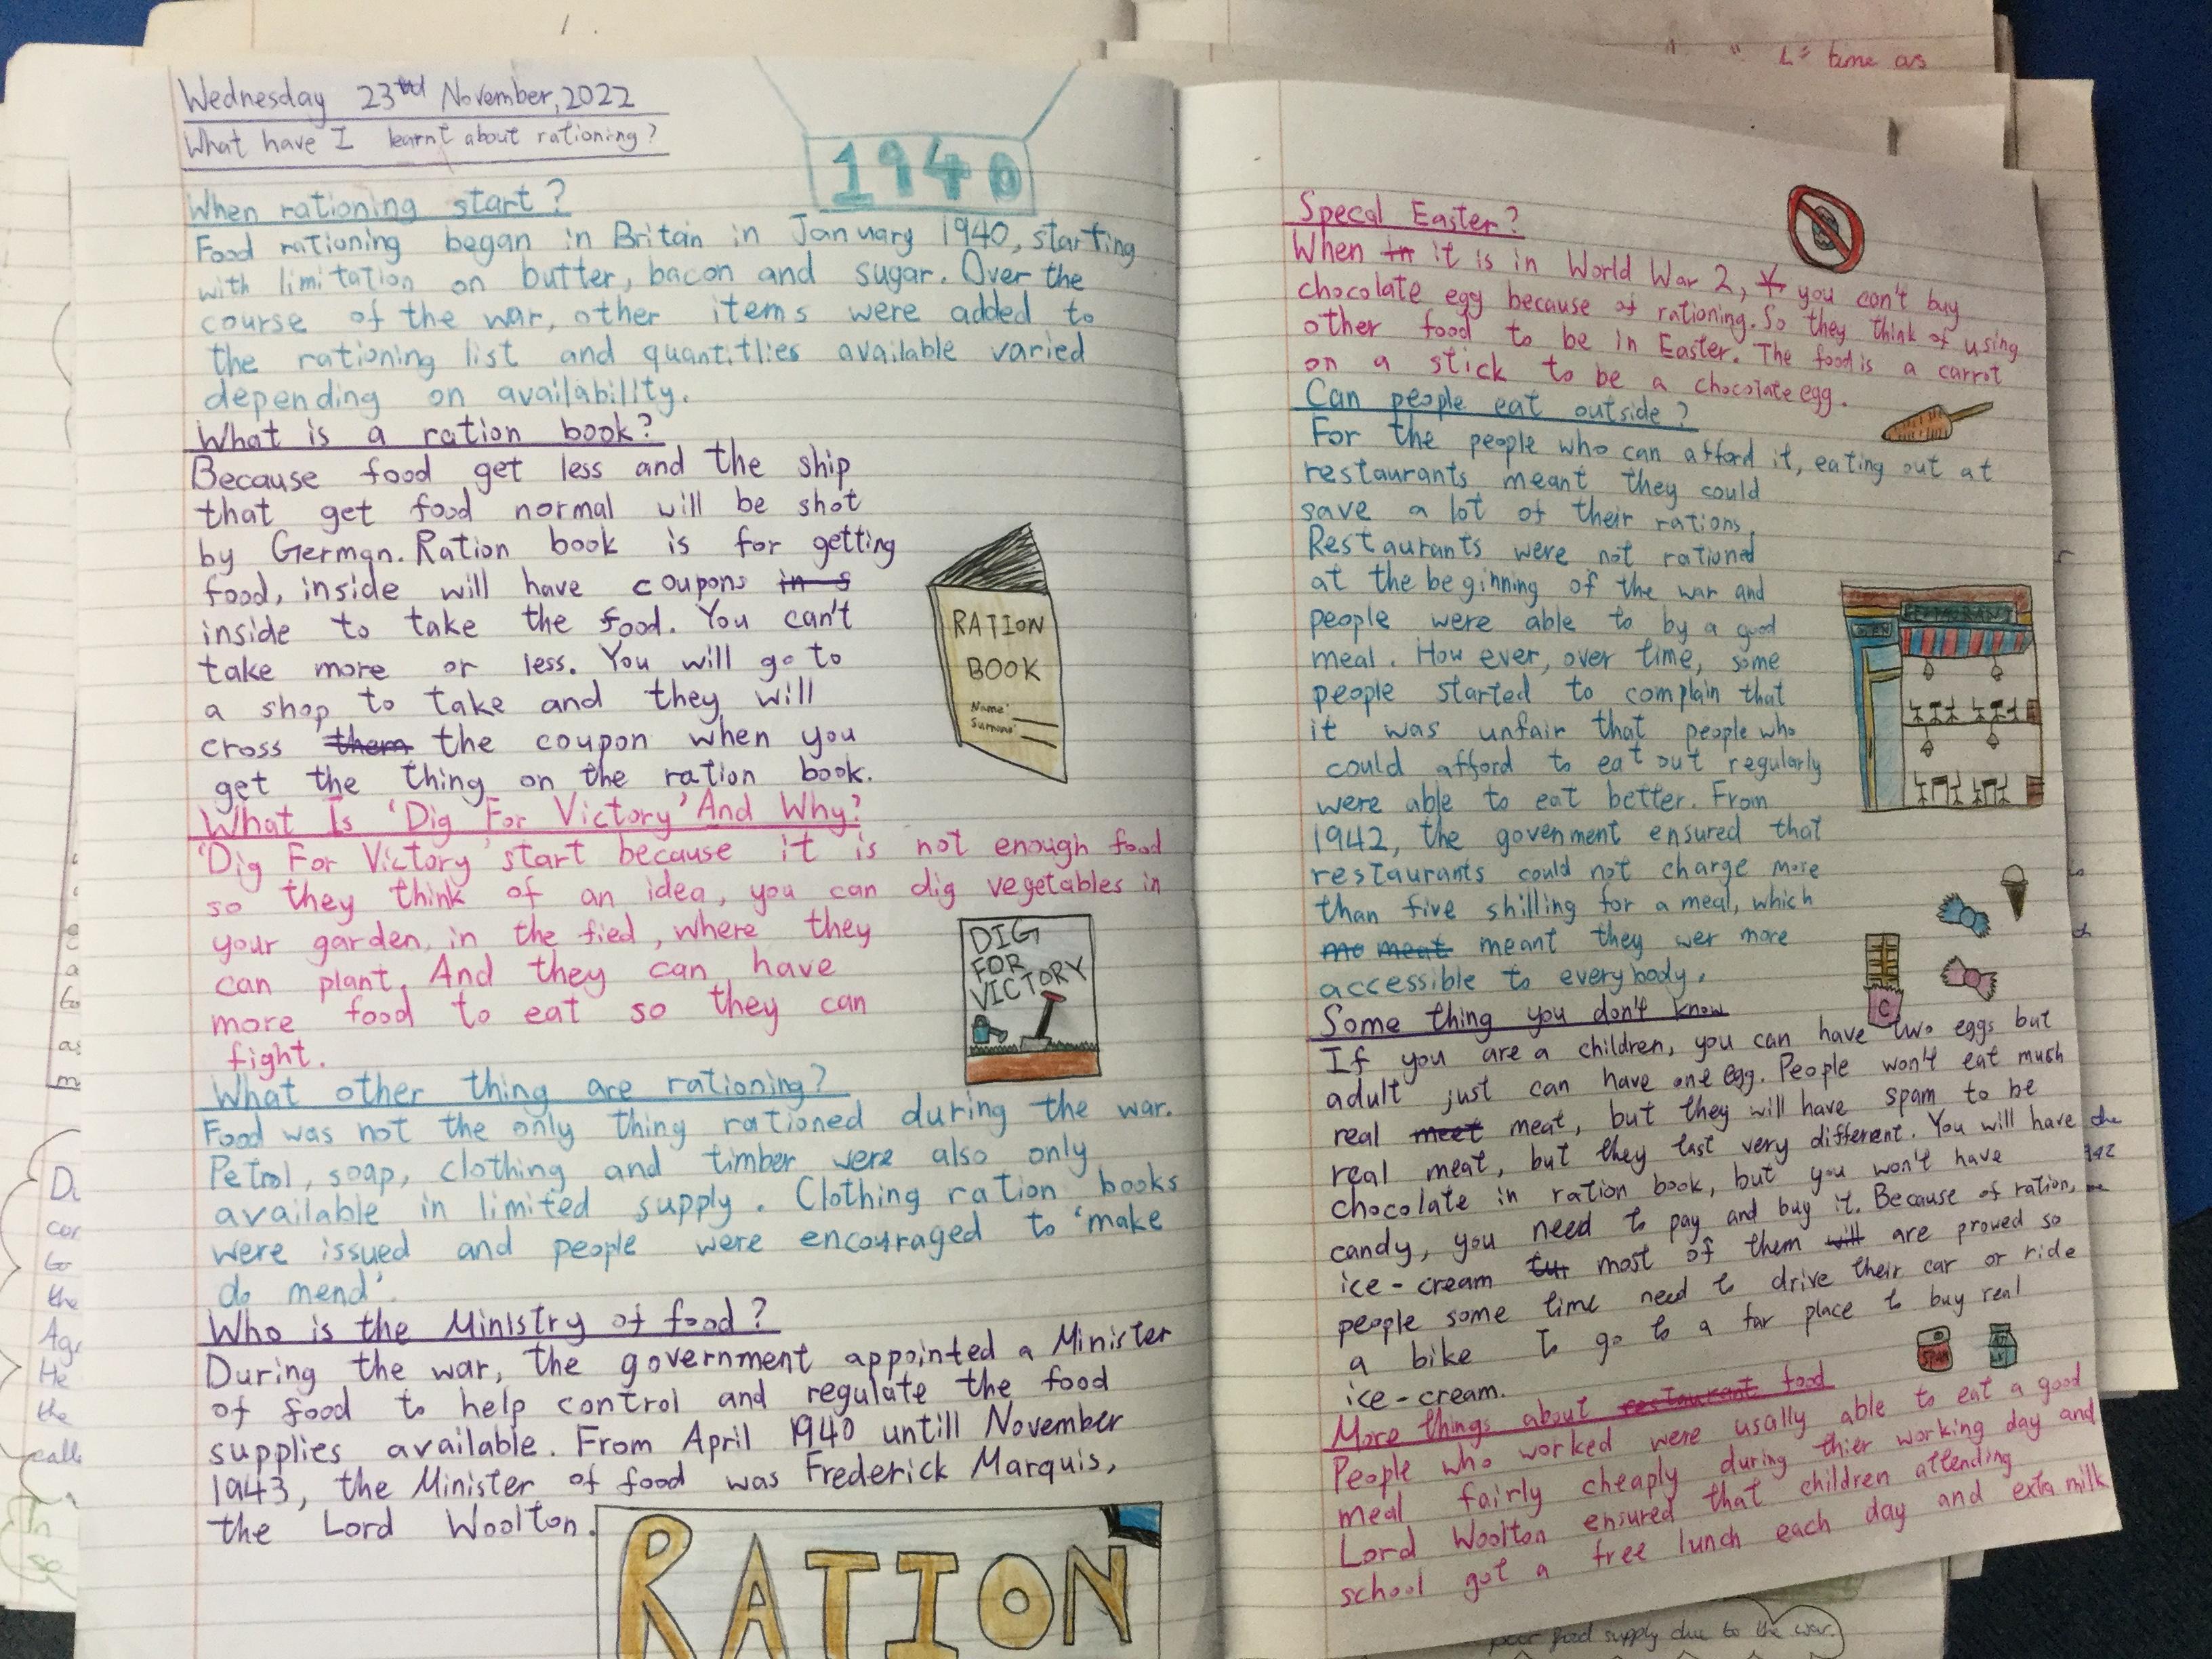 Wednesday 23rd November, 2022
What have I learnt about rationing?
1940
When rationing start?
Food rationing began in Britain in January 1940, starting
with limitation on butter, bacon and sugar. Over the
course of the war, other items were added to
the rationing list and quantitlies available varied
depending on availability.
What is a ration book?
Because food get less and the ship
that get food normal will be shot
by German. Ration book is for getting
food, inside will have coupons in s
inside to take the food. You can't
take more or less. You will go to
a shop to take and they will
cross them the coupon when you
get the thing on the ration book.
RATION
BOOK
Name:
Surname:
What Is 'Dig For Victory' And Why?
'Dig For Victory' start because it is not enough food
so they think of an idea, you can dig vegetables in
your garden, in the fied, where they
can plant. And they can have
more food to eat so they can
fight.
DIG
FOR
VICTORY
What other thing are rationing?
Food was not the only thing rationed during the war.
Petrol, soap, clothing and timber were also only
available in limited supply. Clothing ration books
were issued and people were encouraged to 'make
do mend'.
Who is the Ministry of food?
During the war, the government appointed a Minister
of food to help control and regulate the food
supplies available. From April 1940 untill November
1943, the Minister of food was Frederick Marquis,
the Lord Woolton.
RATION
Specal Easter?
When in it is in World War 2, Y you can't buy
chocolate egg because of rationing. So they think of using
other food to be in Easter. The food is a carrot
on a stick to be a chocolate egg.
Can people eat outside?
For the people who can afford it, eating out at
restaurants meant they could
save a lot of their rations.
Restaurants were not rationed
at the beginning of the war and
people were able to by a good
meal. How ever, over time, some
people started to complain that
it was unfair that people who
could afford to eat out regularly
were able to eat better. From
1942, the govenment ensured that
restaurants could not charge more
than five shilling for a meal, which
mo meat meant they wer more
accessible to everybody.
OPEN
RESTAURANT
Some thing you don't know
If you are a children, you can have two eggs but
adult just can have one egg. People won't eat mush
real meet meat, but they will have spam to be
real meat, but they tast very different. You will have
chocolate in ration book, but you won't have
candy, you need to pay and buy it. Because of ration,
ice-cream tur most of them will are prowed so
people some time need to drive their car or ride
a bike to go to a far place to buy real
ice-cream.
C
SPAM
More things about restaurant food
People who worked were usally able to eat a good
meal fairly cheaply during thier working day and
Lord Woolton ensured that children attending
school got a free lunch each day and exta milk
L= time as
poor food supply due to the war.